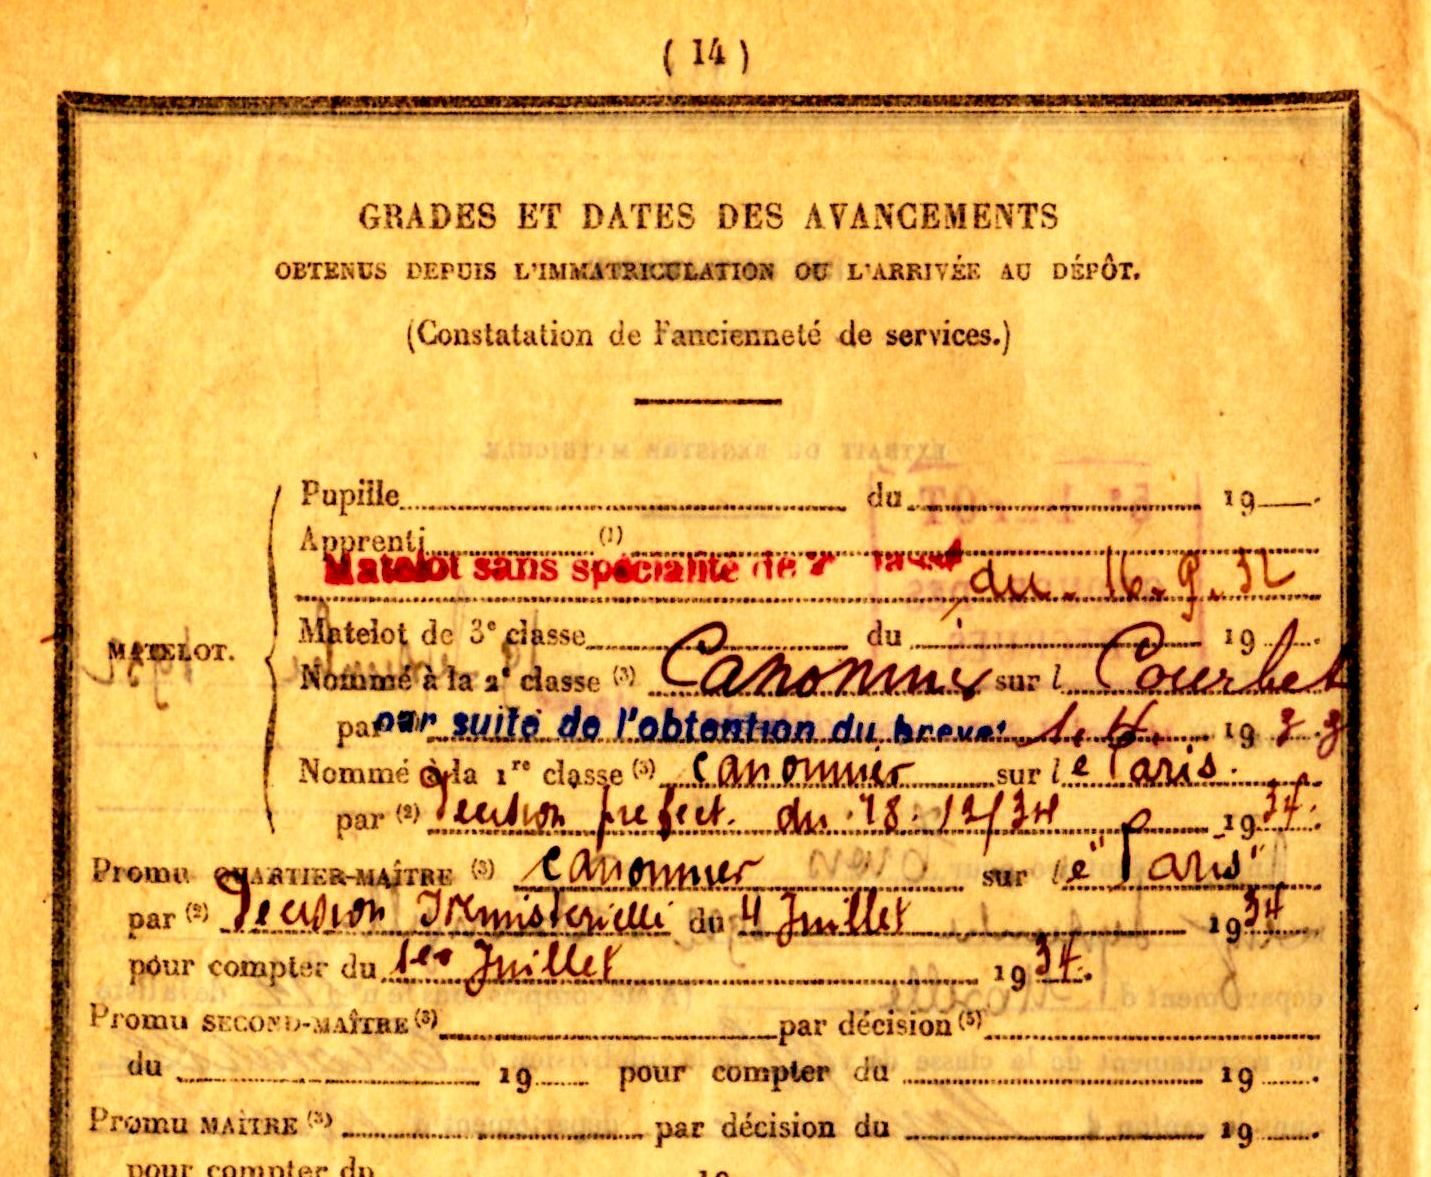 ( 14 )
GRADES ET DATES DES AVANCEMENTS
OBTENUS DEPUIS L'IMMATRICULATION OU L'ARRIVÉE AU DÉPÔT.
(Constatation de l'ancienneté de services.)
Pupille du 19 .
Apprenti (1)
Matelot sans spécialité de 2e classe du 16. 9. 32
MATELOT.
Matelot de 3e classe du 19 .
Nommé à la 2e classe (3) Canonnier sur l Courbet
par par suite de l'obtention du brevet 1. 4. 19 33
Nommé à la 1re classe (3) canonnier sur le Paris.
par (2) Décision préfect. du 18. 12/34 19 34.
Promu QUARTIER-MAÎTRE (3) canonnier sur le "Paris"
par (2) Décision Ministérielle du 4 Juillet 19 34
pour compter du 1er Juillet 19 34.
Promu SECOND-MAÎTRE (3) par décision (5)
du 19 pour compter du 19 .
Promu MAÎTRE (3) par décision du 19 .
pour compter du 19